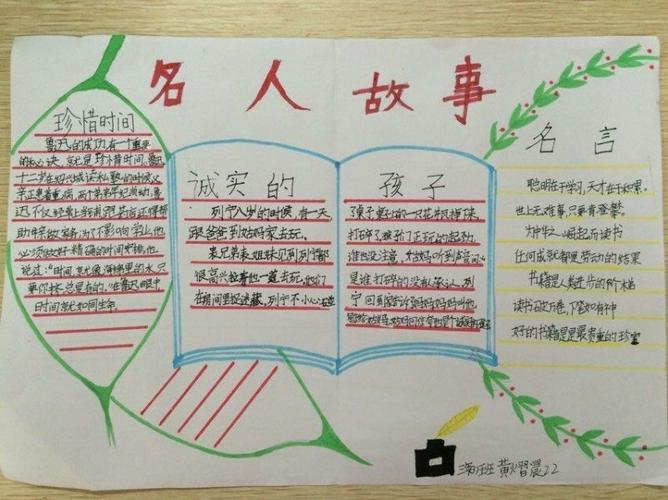 名人故事
珍惜时间
鲁迅的成功,有一个重要
的秘诀,就是珍惜时间。鲁迅
十二岁在绍兴城读私塾的时候,父
亲正患着重病,两个弟弟年纪尚幼,鲁
迅不仅经常上当铺,跑药店,还得帮
助母亲做家务;为了不影响学业,他
必须做好精确的时间安排。他
说过:"时间,就像海绵里的水,只
要你挤,总是有的。"在鲁迅眼中
时间就如同生命。
诚实的
列宁八岁的时候,有一天
跟爸爸到姑妈家去玩。
表兄弟表姐妹见到列宁都
很高兴,拉着他一道去玩。他们
在房间里捉迷藏,列宁不小心
孩子
打碎了,孩子们正玩的起劲,
谁也没注意。大姑妈听到声音,问
是谁打碎的,没有人承认,列
宁回到
名言
聪明在于学习,天才在于积累。
世上无难事,只要肯登攀。
为中华之崛起而读书
任何成就都是劳动的结果
书籍是人类进步的阶梯
读书破万卷,下笔如有神
好的书籍是最贵重的珍宝